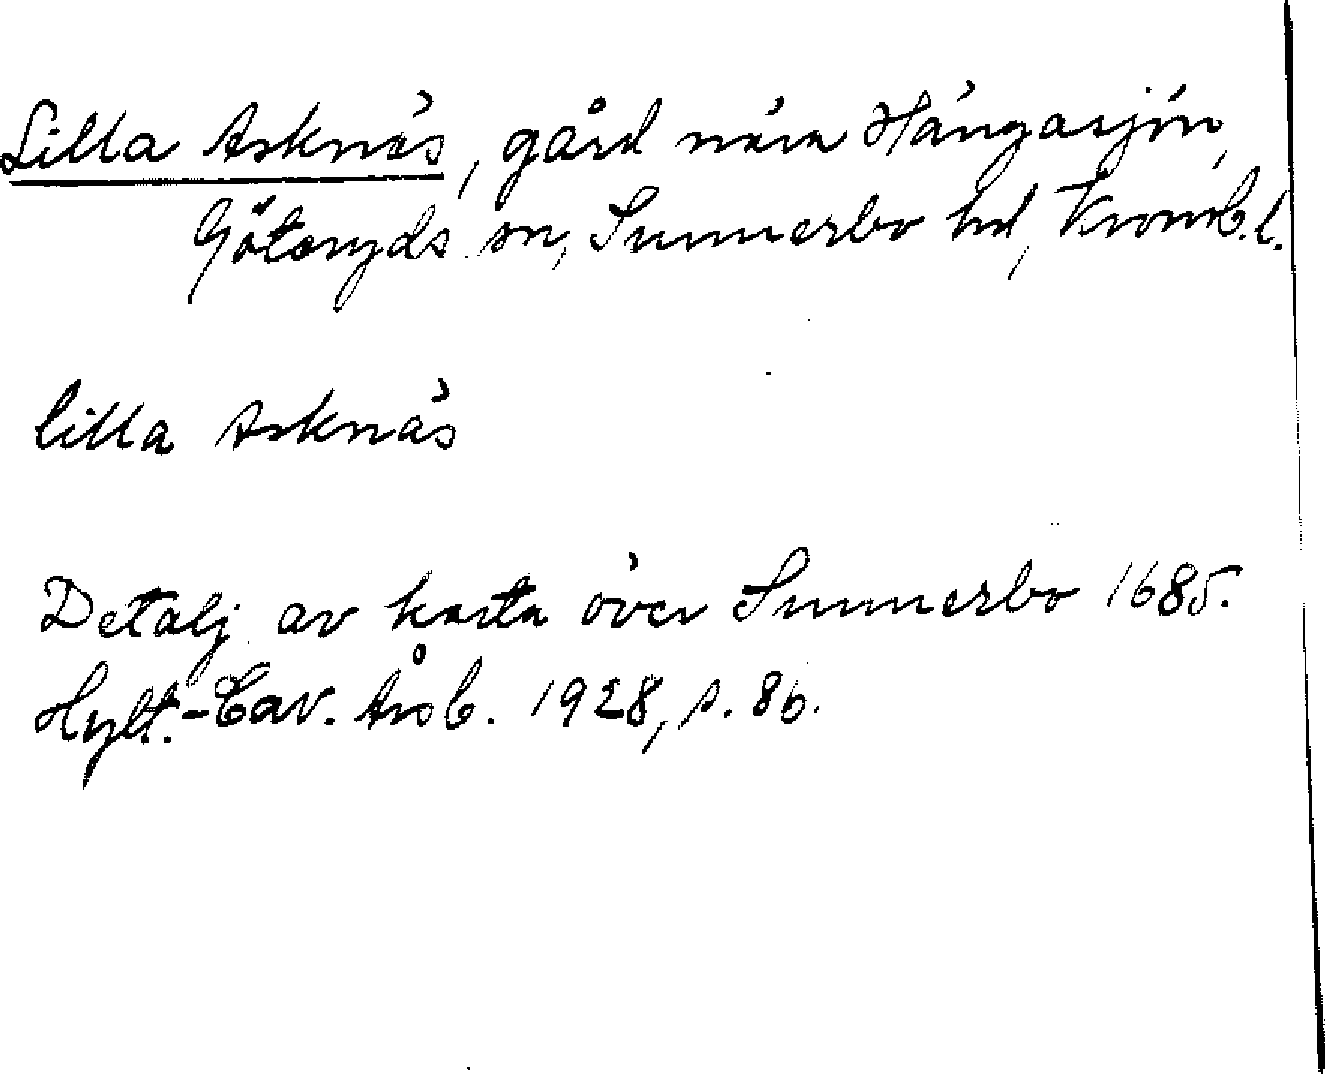 Lilla Asknäs, gård nära Hängasjön,
Göteryds sn, Sunnerbo hd, Kronob. l.
lilla Asknäs
Detalj av karta över Sunnerbo 1685.
Hylt.-Cav. Årsb. 1928, s. 86.